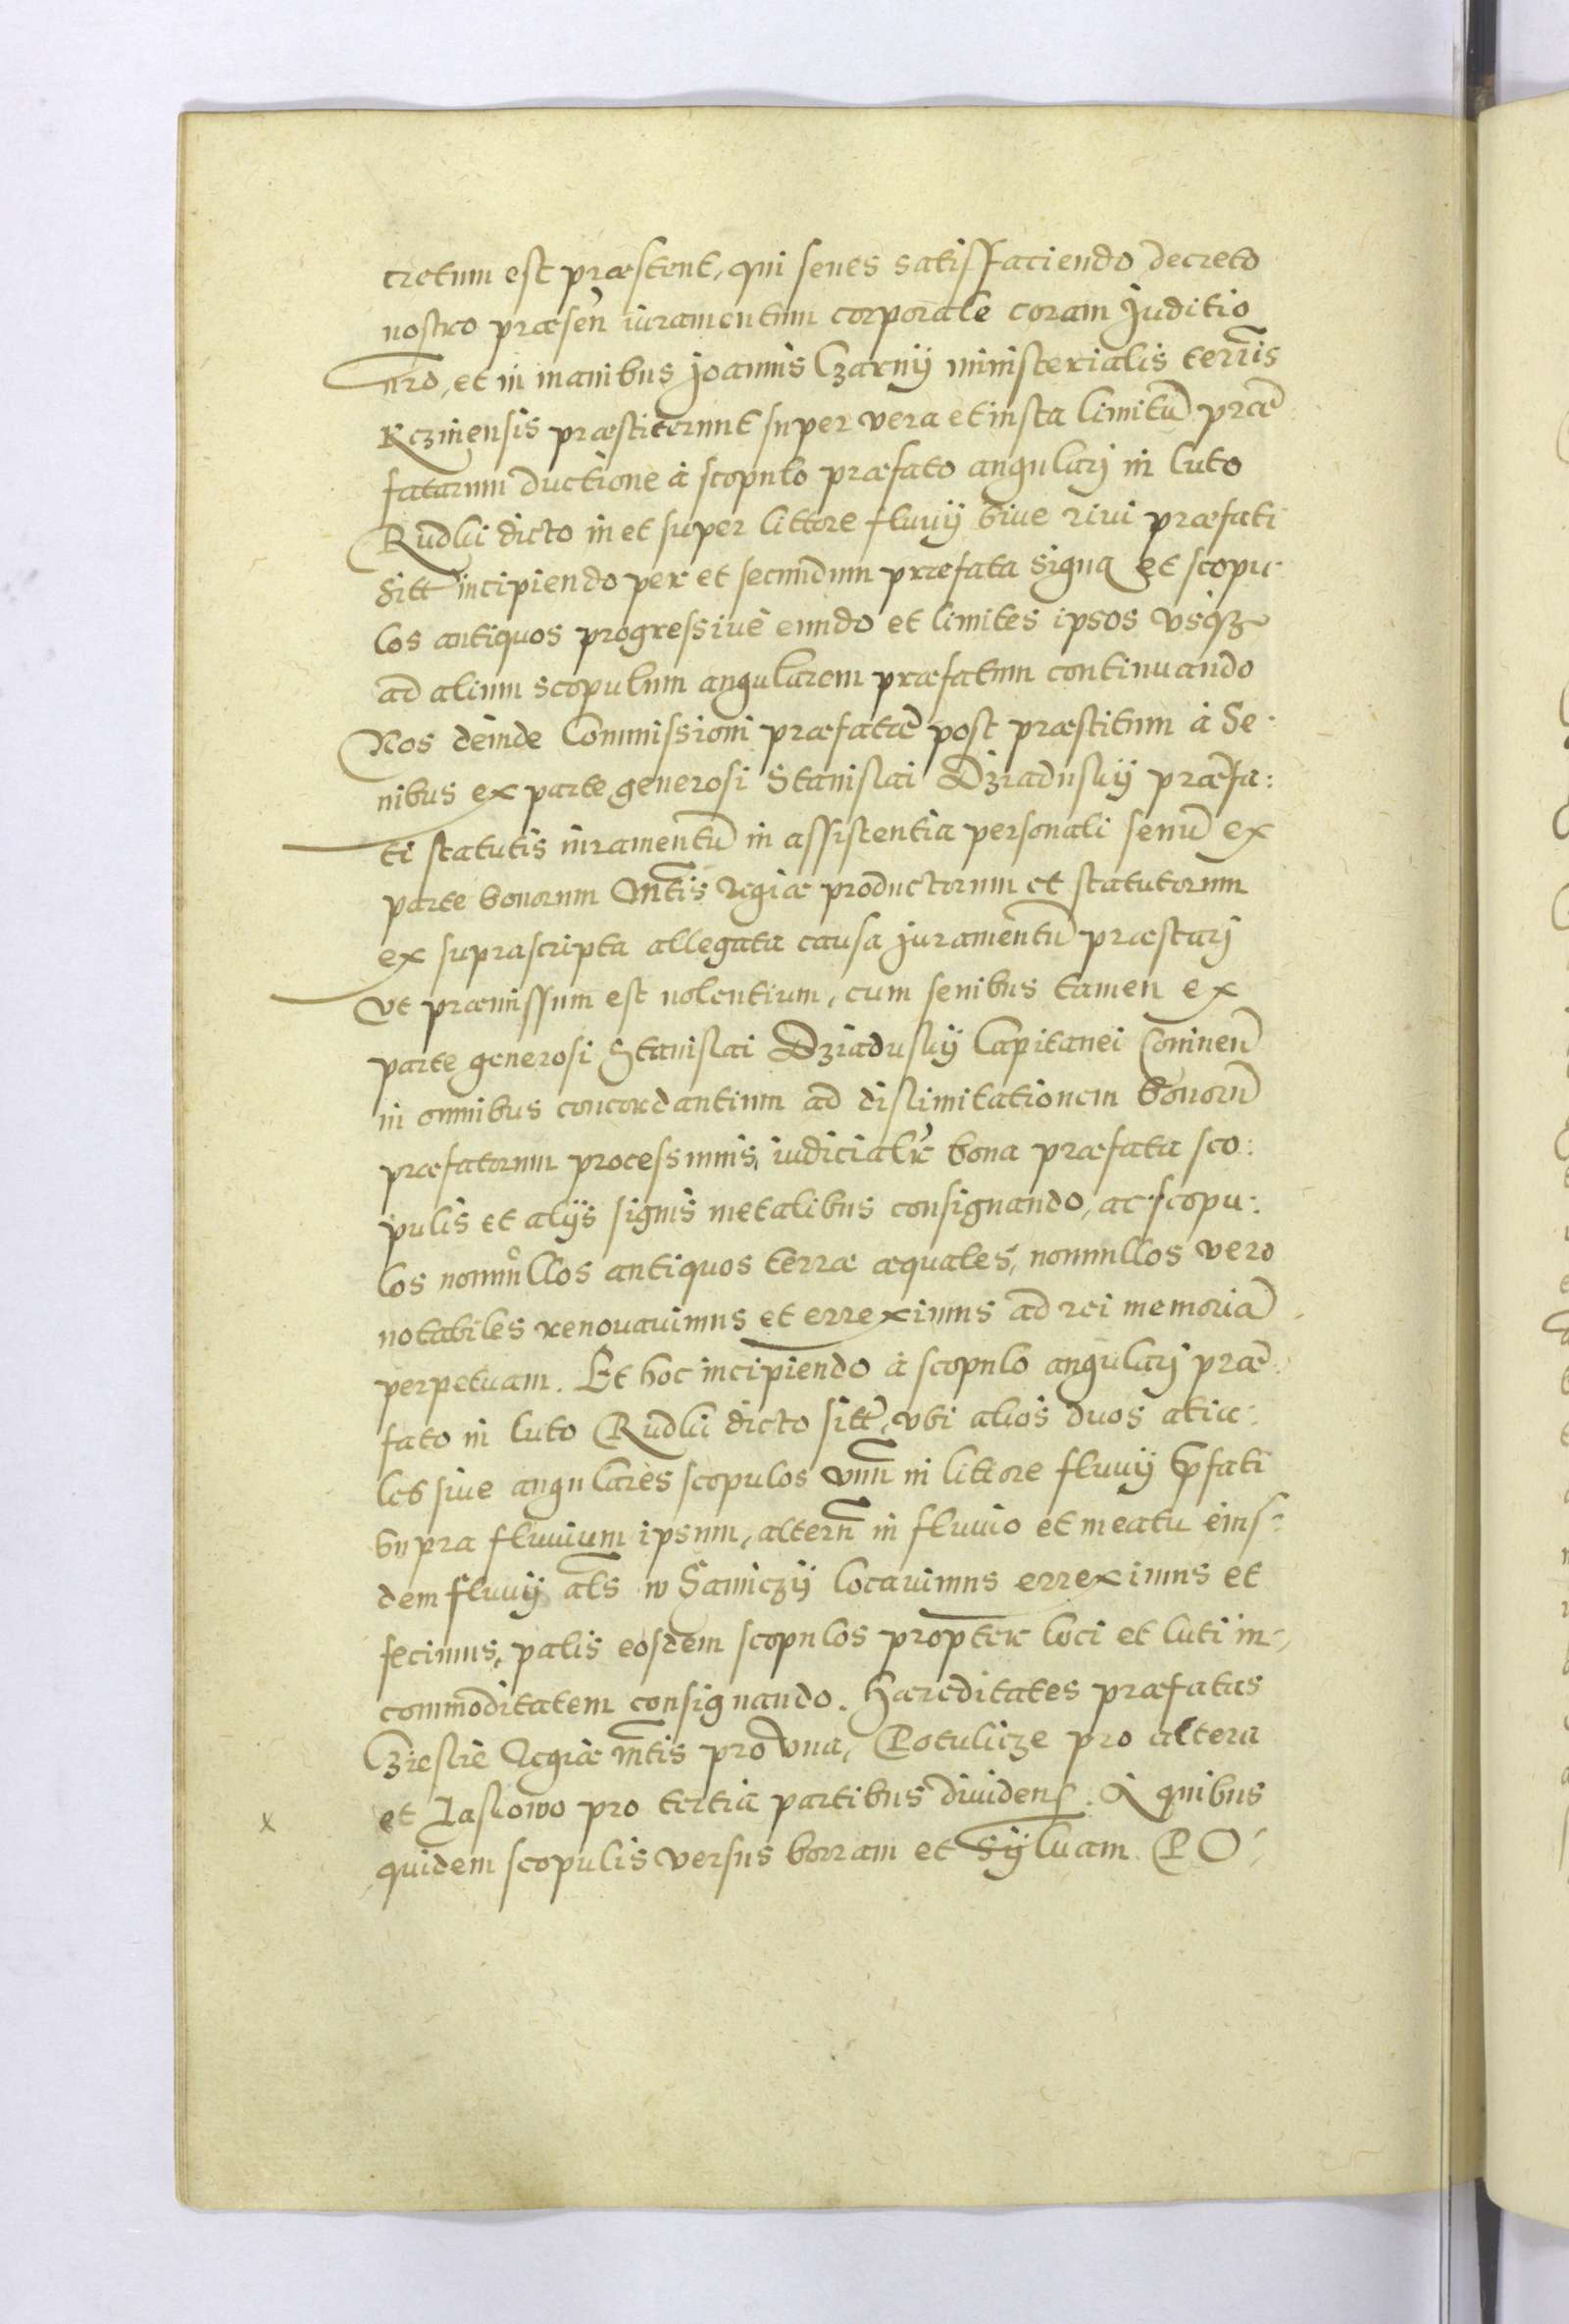 cretum est præstent, qui senes satisfaciendo decreto
nostro præseñ iuramentum corporale coram Juditio
nrõ, et in manibus Joannis Czarnij ministerialis terrĩs
Kczinensis præstiterunt super vera et iusta limitũ præ
fatarum ductione à scopulo præfato angularj in luto
Rudki dicto in et super littore fluvij sive rivi præfati
sitt incipiendo per et secundum præfata signa et scopu-
los antiquos progressivè eundo et limites ipsos vsq3
ad alium scopulum angularem præfatum continuando
Nos deinde Commissionj præfatæ post præstitum à Se-
nibus ex parte generosi Stanislai Dziaduskij præfa:
ti statutis iuramentũ in assistentia personali senũ ex
parte bonorum Mtĩs Regiæ productorum et statutorum
ex suprascripta allegata causa juramentũ præstarj
vt præmissum est nolentium, cum senibus tamen ex
parte generosi Stanislai Dziaduskij Capitanei Coninen̄
in omnibus concordantium ad dislimitationem bonorũ
præfatorum processimus, iudicialr̃ bona præfata sco:
pulis et alijs signis metalibus consignando, ac scopu:
los nonnullos antiquos terræ æquales, nonnullos vero
notabiles renovavimus et erreximus ad rei memoriã
perpetuam. Et hoc incipiendo à scopulo angularj præ-
fato in luto Rudki dicto sitt, vbi alios duos acia:
les sive angulares scopulos vnũ in littore fluvij p̃fati
supra fluvium ipsum, alterũ in fluvio et meatu eius-
dem fluvij al̃s w Samiczij locavimus erreximus et
fecimus, palis eosdem scopulos propter loci et luti in-
commoditatem consignando. Hæreditates præfatas
Czeskie Regiæ mtĩs pro vna, Potulicze pro altera
et Jaskowo pro tertia partibus dividen̄. A quibus
x quidem scopulis versus borram et sylvam PO-